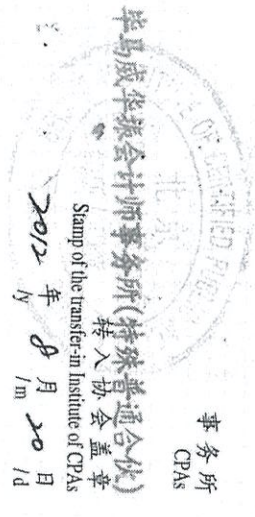 事务所
CPAs
毕马威华振会计师事务所(特殊普通合伙)
转入协会盖章
Stamp of the transfer-in Institute of CPAs
2012 年 8 月 20 日
/y /m /d
OF CERTIFIED PUBLIC